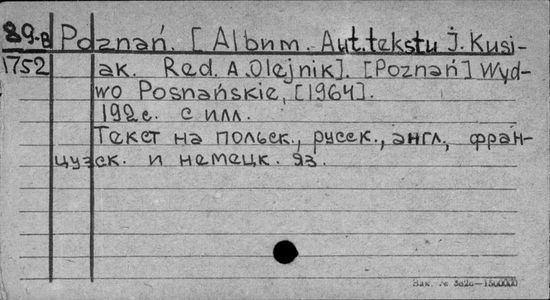 89-В Poznań. [Album. Aut.tekstu J. Kusi-
1752 ak. Red. A.Olejnik]. [Poznań] Wyd-
wo Posnańskie, [1964].
192с. с илл.
Текст на польск., русск., англ., фран-
цузск. и немецк. яз.
Зак. № 3626—1500000